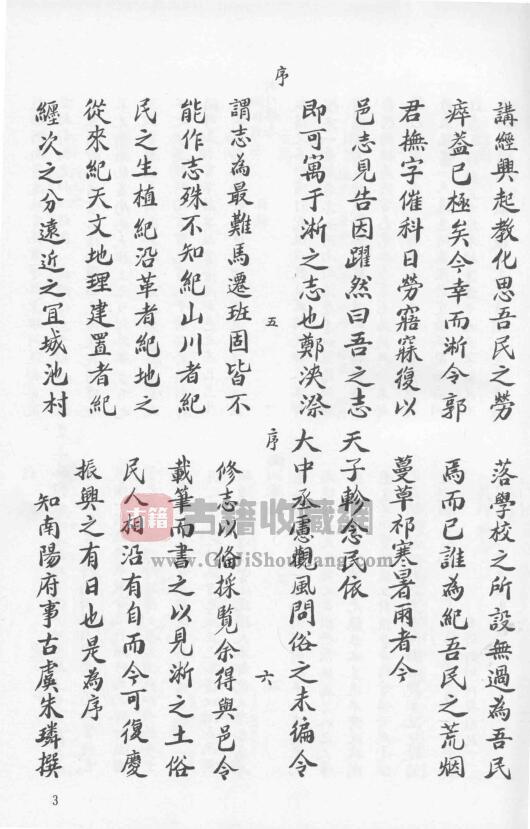 序
講經興起教化思吾民之勞
瘁葢已極矣今幸而淅令郭
君撫字催科日勞寤寐復以
邑志見告因躍然曰吾之志
即可寓于淅之志也鄭浹漈
五
謂志為最難馬遷班固皆不
能作志殊不知紀山川者紀
民之生植紀沿革者紀地之
從來紀天文地理建置者紀
纏次之分遠近之宜城池村
序
落學校之所設無過為吾民
焉而已誰為紀吾民之荒烟
蔓草祁寒暑雨者今
天子軫念民依
大中丞慮觀風問俗之未編令
六
修志以俻採覧余得與邑令
載筆而書之以見淅之土俗
民人相沿有自而今可復慶
振興之有日也是為序
知南陽府事古虞朱璘撰
3
古籍
古籍收藏網
www.GuJiShouCang.com